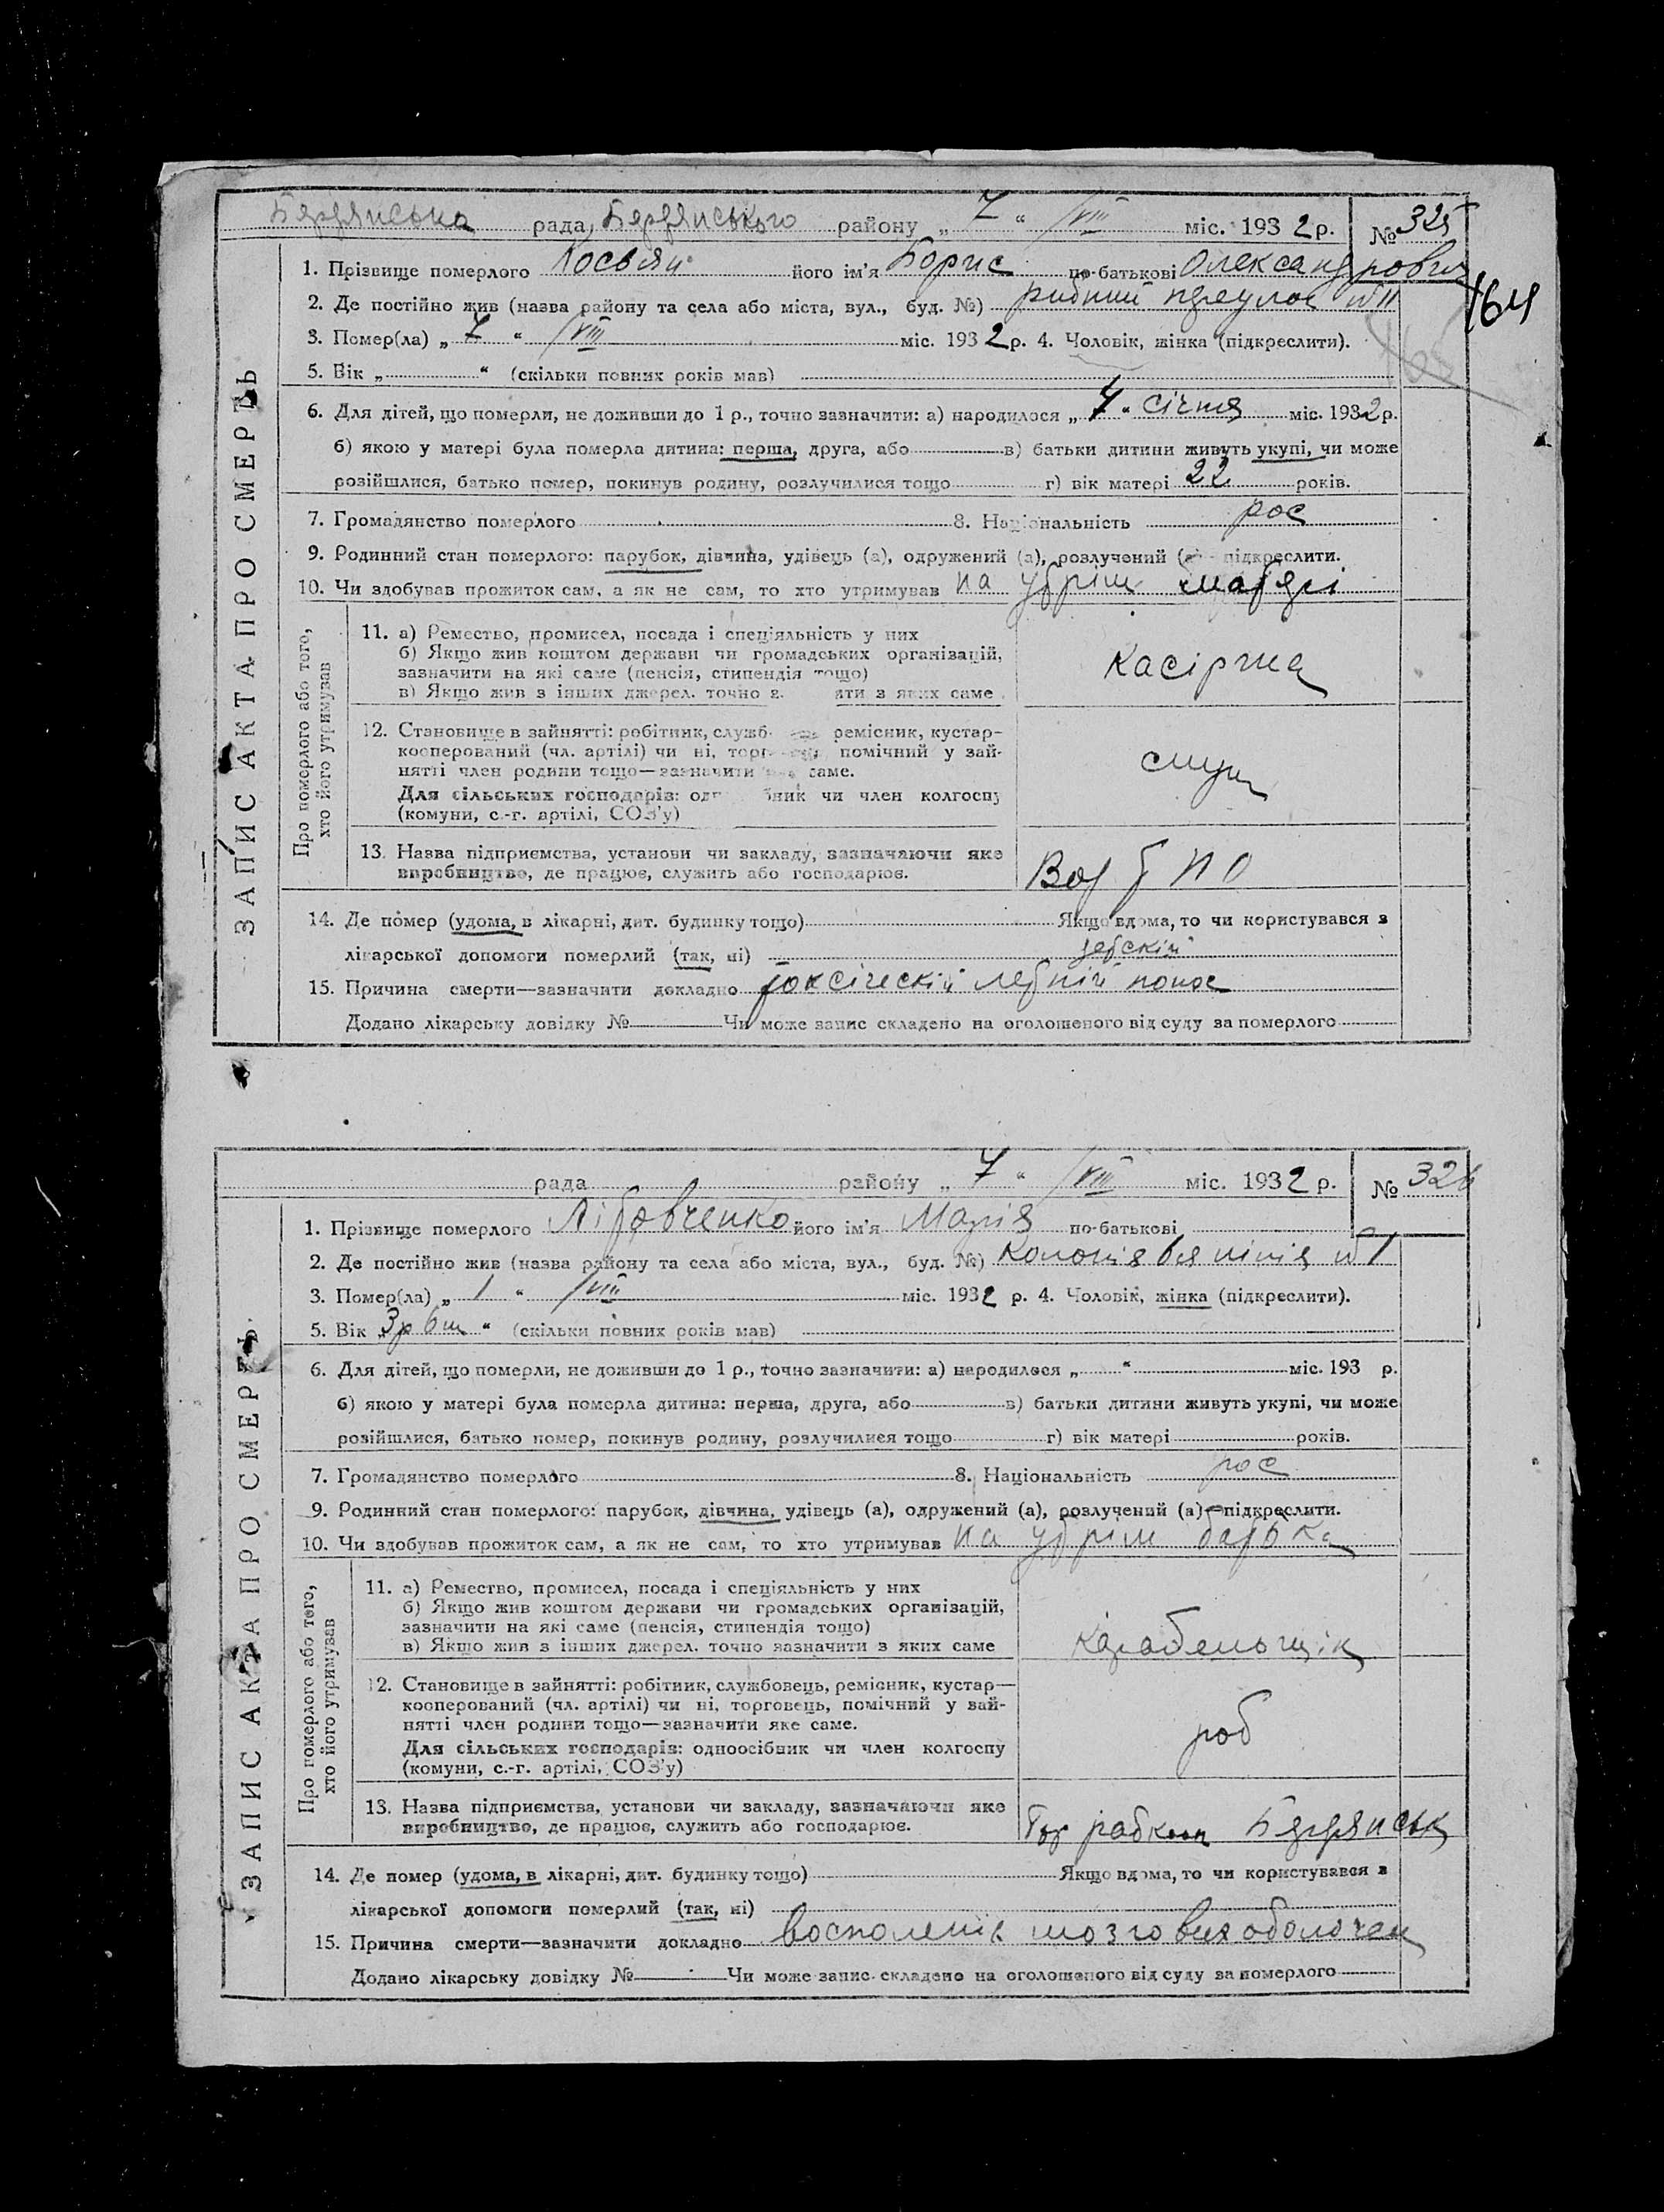 Бердянська рада, Бердянського району „ 7 “ /VIII міс. 1932 р. № 325
1. Прізвище померлого його ім'я Борис по-батькові Олександрович
2. Де постійно жив (назва району та села або міста, вул., буд. №) рибний переулок №11
164
3. Помер(ла) „ 7 “ /VIII міс. 1932 р. 4. Чоловік, жінка (підкреслити).
5. Вік „ “ (скільки повних років мав)
6. Для дітей, що померли, не доживши до 1 р., точно зазначити: а) народилося „ 7 “ січня міс. 1932 р.
б) якою у матері була померла дитина: перша, друга, або в) батьки дитини живуть укупі, чи може
розійшлися, батько помер, покинув родину, розлучилися тощо г) вік матері 22 років.
7. Громадянство померлого 8. Національність рос
9. Родинний стан померлого: парубок, дівчина, удівець (а), одружений (а), розлучений (а) підкреслити.
10. Чи здобував прожиток сам, а як не сам, то хто утримував на утрім матері
ЗАПИС АКТА ПРО СМЕРТЬ
Про померлого або того,
хто його утримував
11. а) Ремество, промисел, посада і спеціяльність у них
б) Якщо жив коштом держави чи громадських організацій,
зазначити на які саме (пенсія, стипендія тощо)
в) Якщо жив з інших джерел. точно з яти з яких саме
касірша
12. Становище в зайнятті: робітник, служб ремісник, кустар-
кооперований (чл. артілі) чи ні, торг помічний у зай-
нятті член родини тощо—зазначити яке саме.
Для сільських господарів: од бник чи член колгоспу
(комуни, с.-г. артілі, СОЗ'у)
служ
13. Назва підприємства, установи чи закладу, зазначаючи яке
виробництво, де працює, служить або господарює.
14. Де помер (удома, в лікарні, дит. будинку тощо) Якщо вдома, то чи користувався з
лікарської допомоги померлий (так, ні)
15. Причина смерти—зазначити докладно токсіческій летній понос
Додано лікарську довідку № Чи може запис складено на оголошеного від суду за померлого
рада району „ 7 “ /VIII міс. 1932 р. № 326
1. Прізвище померлого Літовченко його ім'я Марія по-батькові
2. Де постійно жив (назва району та села або міста, вул., буд. №) Колонія 6я лінія №1
3. Помер(ла) „ 1 “ /VIII міс. 1932 р. 4. Чоловік, жінка (підкреслити).
5. Вік „ 3р 6м “ (скільки повних років мав)
6. Для дітей, що померли, не доживши до 1 р., точно зазначити: а) народилося „ “ міс. 193 р.
б) якою у матері була померла дитина: перша, друга, або в) батьки дитини живуть укупі, чи може
розійшлися, батько помер, покинув родину, розлучилися тощо г) вік матері років.
7. Громадянство померлого 8. Національність рос
9. Родинний стан померлого: парубок, дівчина, удівець (а), одружений (а), розлучений (а)—підкреслити.
10. Чи здобував прожиток сам, а як не сам, то хто утримував на утрім батька
ЗАПИС АКТА ПРО СМЕРТЬ
Про померлого або того,
хто його утримував
11. а) Ремество, промисел, посада і спеціяльність у них
б) Якщо жив коштом держави чи громадських організацій,
зазначити на які саме (пенсія, стипендія тощо)
в) Якщо жив з інших джерел. точно зазначити з яких саме
карабельщік
12. Становище в зайнятті: робітник, службовець, ремісник, кустар—
кооперований (чл. артілі) чи ні, торговець, помічний у зай-
нятті член родини тощо—зазначити яке саме.
Для сільських господарів: одноосібник чи член колгоспу
(комуни, с.-г. артілі, СОЗ'у)
роб
13. Назва підприємства, установи чи закладу, зазначаючи яке
виробництво, де працює, служить або господарює.
Бердянськ
14. Де помер (удома, в лікарні, дит. будинку тощо) Якщо вдома, то чи користувався з
лікарської допомоги померлий (так, ні)
15. Причина смерти—зазначити докладно воспаленіє мозгових оболочек
Додано лікарську довідку № Чи може запис складено на оголошеного від суду за померлого